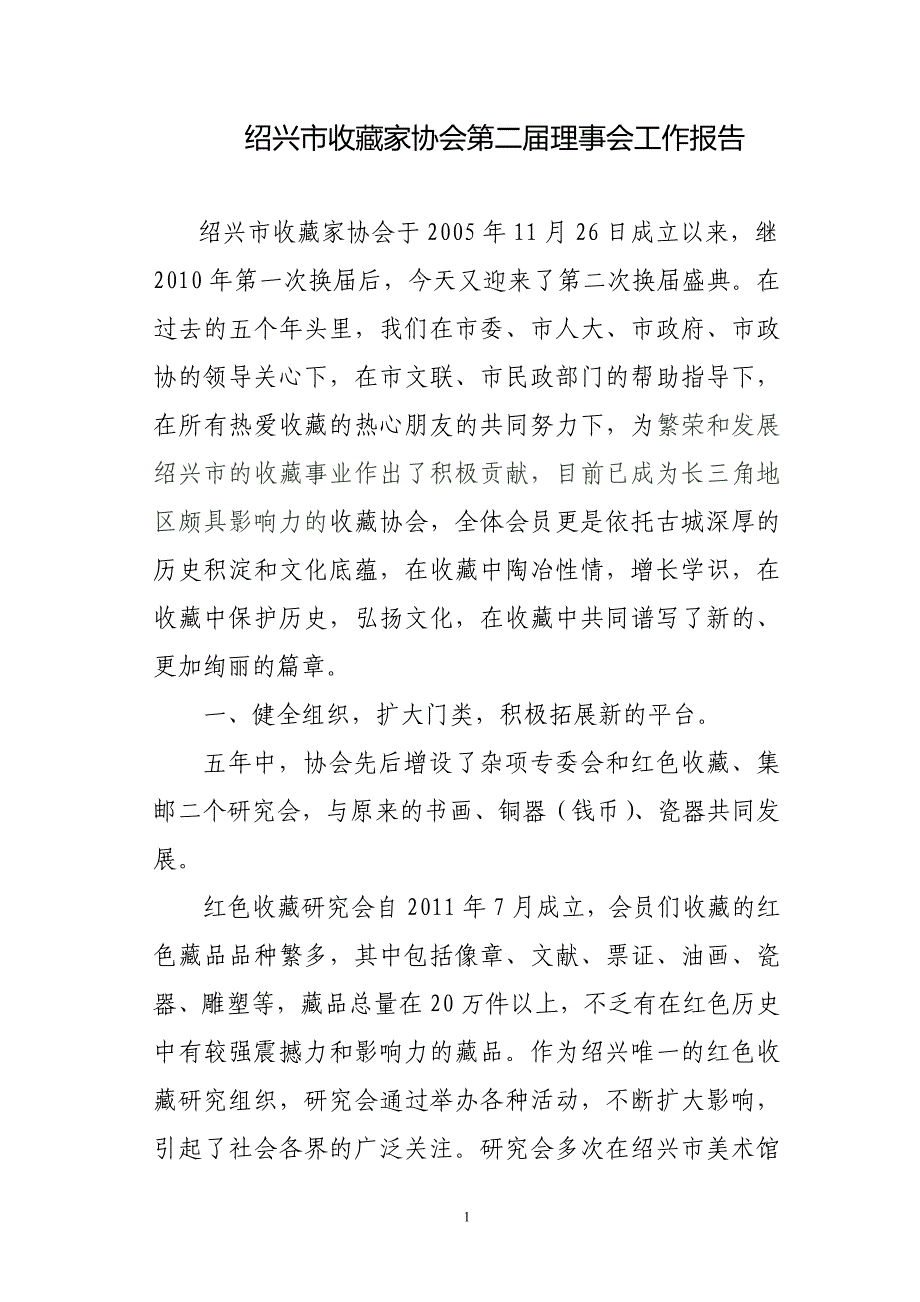 绍兴市收藏家协会第二届理事会工作报告
绍兴市收藏家协会于 2005 年 11 月 26 日成立以来，继
2010 年第一次换届后，今天又迎来了第二次换届盛典。在
过去的五个年头里，我们在市委、市人大、市政府、市政
协的领导关心下，在市文联、市民政部门的帮助指导下，
在所有热爱收藏的热心朋友的共同努力下，为繁荣和发展
绍兴市的收藏事业作出了积极贡献，目前已成为长三角地
区颇具影响力的收藏协会，全体会员更是依托古城深厚的
历史积淀和文化底蕴，在收藏中陶冶性情，增长学识，在
收藏中保护历史，弘扬文化，在收藏中共同谱写了新的、
更加绚丽的篇章。
一、健全组织，扩大门类，积极拓展新的平台。
五年中，协会先后增设了杂项专委会和红色收藏、集
邮二个研究会，与原来的书画、铜器（钱币）、瓷器共同发
展。
红色收藏研究会自 2011 年 7 月成立，会员们收藏的红
色藏品品种繁多，其中包括像章、文献、票证、油画、瓷
器、雕塑等，藏品总量在 20 万件以上，不乏有在红色历史
中有较强震撼力和影响力的藏品。作为绍兴唯一的红色收
藏研究组织，研究会通过举办各种活动，不断扩大影响，
引起了社会各界的广泛关注。研究会多次在绍兴市美术馆
1